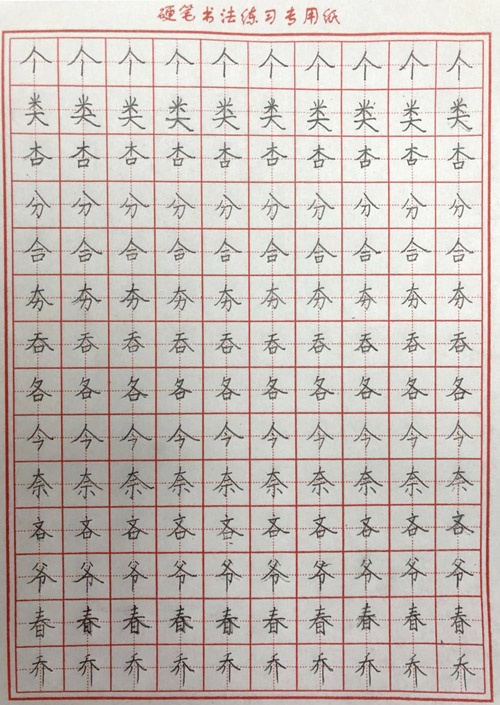 硬笔书法练习专用纸
个个个个个个个个个个
类类类类类类类类类类
杏杏杏杏杏杏杏杏杏杏
分分分分分分分分分分
合合合合合合合合合合
夯夯夯夯夯夯夯夯夯夯
吞吞吞吞吞吞吞吞吞吞
各各各各各各各各各各
今今今今今今今今今今
奈奈奈奈奈奈奈奈奈奈
吝吝吝吝吝吝吝吝吝吝
爷爷爷爷爷爷爷爷爷爷
春春春春春春春春春春
乔乔乔乔乔乔乔乔乔乔